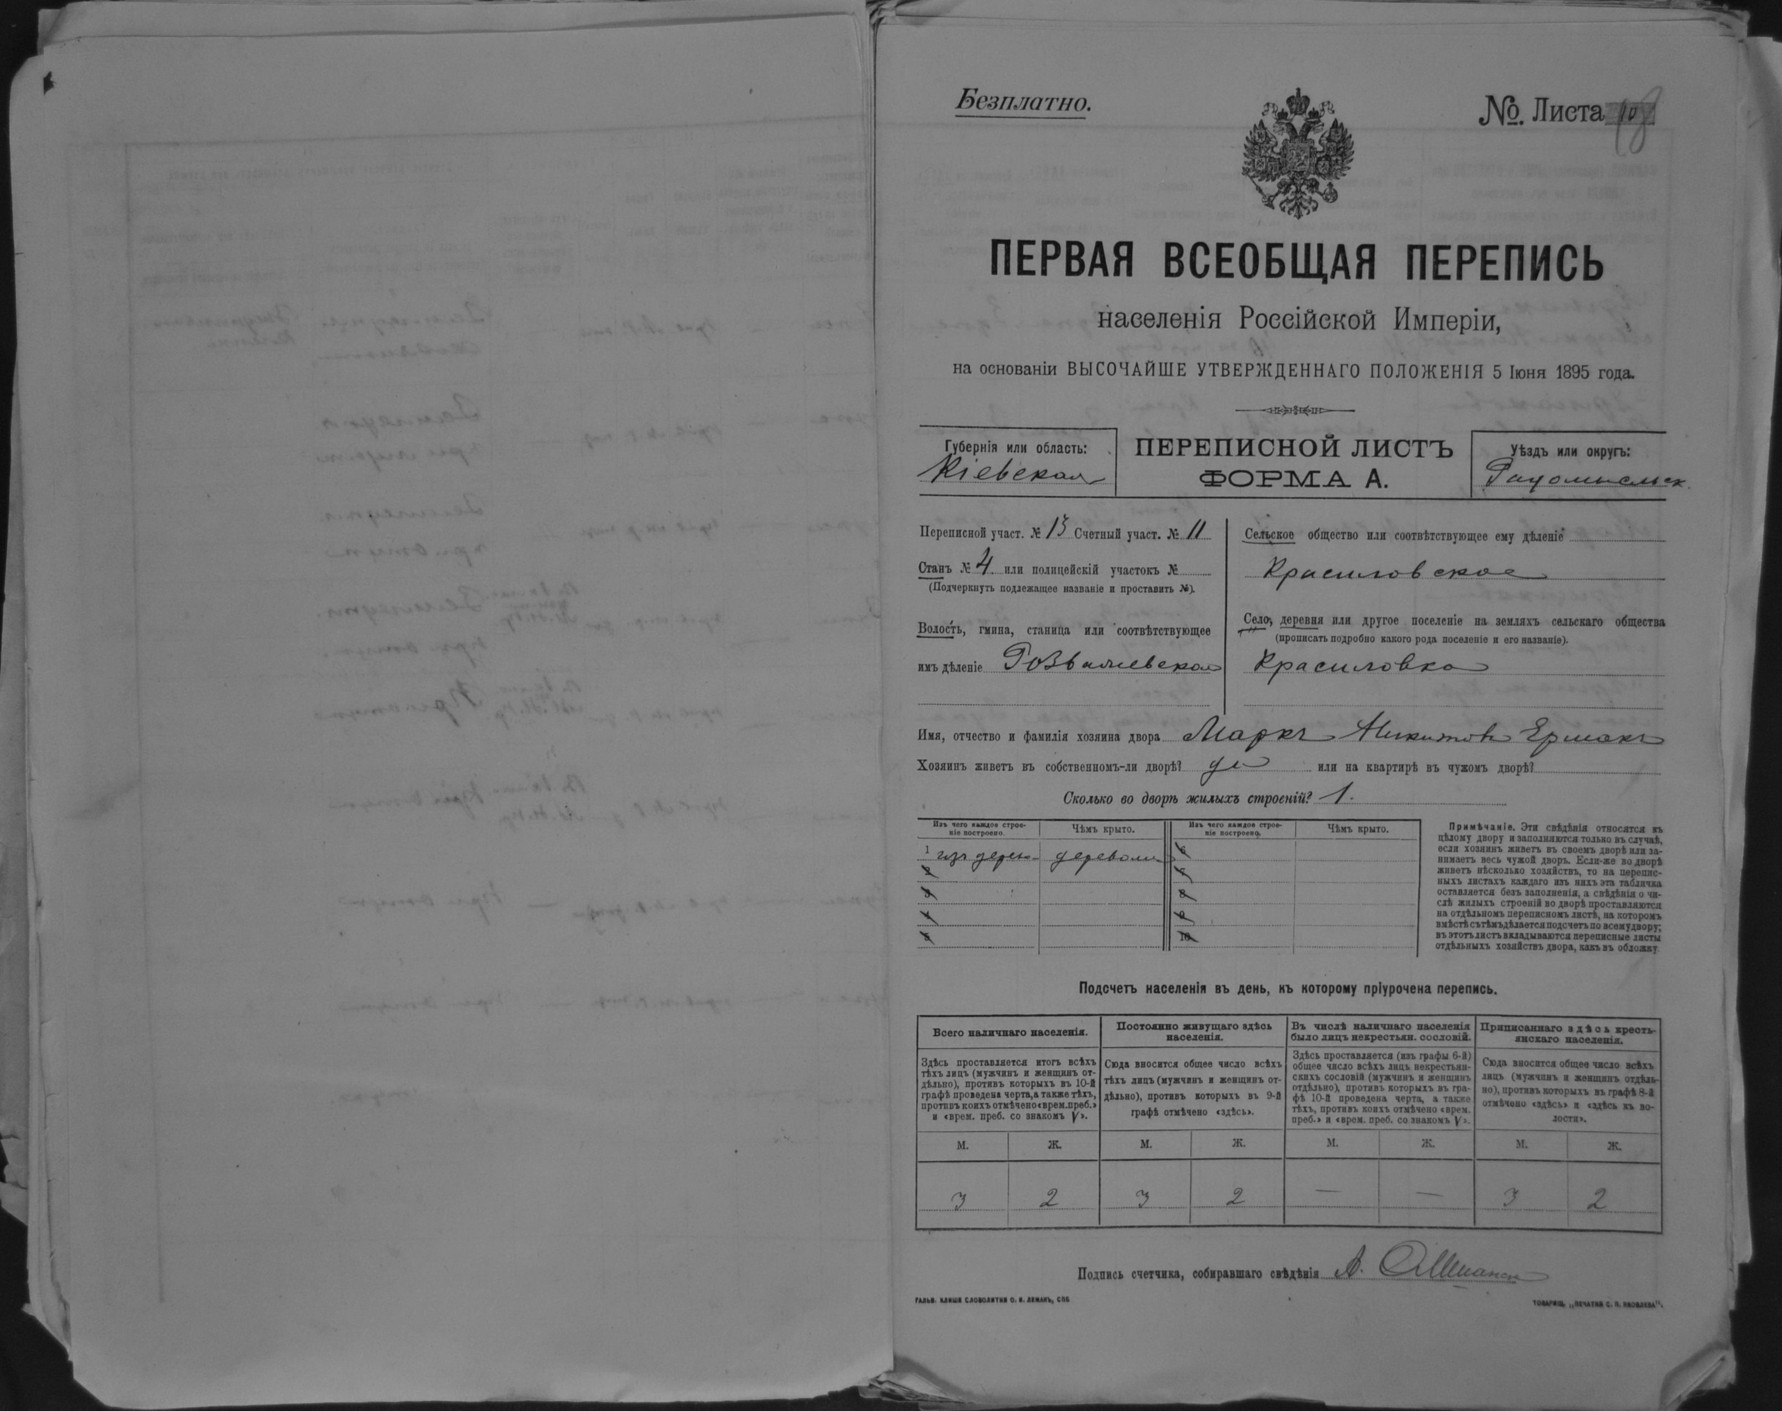 Безплатно.
№. Листа 10
ПЕРВАЯ ВСЕОБЩАЯ ПЕРЕПИСЬ
населенія Россійской Имперіи,
на основаніи ВЫСОЧАЙШЕ УТВЕРЖДЕННАГО ПОЛОЖЕНІЯ 5 Іюня 1895 года.
Губернія или область:
Кіевская
ПЕРЕПИСНОЙ ЛИСТЪ
ФОРМА А.
Уѣздъ или округъ:
Радомысльск.
Переписной участ. № 13 Счетный участ. № 11
Станъ № 4 или полицейскій участокъ №
(Подчеркнуть подлежащее названіе и проставить №).
Волость, гмина, станица или соотвѣтствующее
имъ дѣленіе Розважевская
Сельское общество или соотвѣтствующее ему дѣленіе
Красиловское
Село, деревня или другое поселеніе на земляхъ сельскаго общества
(прописать подробно какого рода поселеніе и его названіе).
Красиловка
Имя, отчество и фамилія хозяина двора Маркъ Никитовъ Ермакъ
Хозяинъ живетъ въ собственномъ-ли дворѣ? да или на квартирѣ въ чужомъ дворѣ?
Сколько во дворѣ жилыхъ строеній? 1.
Изъ чего каждое строе-
ніе построено.
Чѣмъ крыто.
Изъ чего каждое строе-
ніе построено.
Чѣмъ крыто.
1 изъ дерев. деревом 6
2 7
3 8
4 9
5 10
Примѣчаніе. Эти свѣдѣнія относятся къ
цѣлому двору и заполняются только въ случаѣ,
если хозяинъ живетъ въ своемъ дворѣ или за-
нимаетъ весь чужой дворъ. Если-же во дворѣ
живетъ нѣсколько хозяйствъ, то на перепис-
ныхъ листахъ каждаго изъ нихъ эта табличка
оставляется безъ заполненія, а свѣдѣнія о чи-
слѣ жилыхъ строеній во дворѣ проставляются
на отдѣльномъ переписномъ листѣ, на которомъ
вмѣстѣ съ тѣмъ дѣлается подсчетъ по всему двору;
въ этотъ листъ вкладываются переписные листы
отдѣльныхъ хозяйствъ двора, какъ въ обложку.
Подсчетъ населенія въ день, къ которому пріурочена перепись.
Всего наличнаго населенія.
Здѣсь проставляется итогъ всѣхъ
тѣхъ лицъ (мужчинъ и женщинъ от-
дѣльно), противъ которыхъ въ 10-й
графѣ проведена черта, а также тѣхъ,
противъ коихъ отмѣчено «врем. преб.»
и «врем. преб. со знакомъ V».
Постоянно живущаго здѣсь
населенія.
Сюда вносится общее число всѣхъ
тѣхъ лицъ (мужчинъ и женщинъ от-
дѣльно), противъ которыхъ въ 9-й
графѣ отмѣчено «здѣсь».
Въ числѣ наличнаго населенія
было лицъ некрестьян. сословій.
Здѣсь проставляется (изъ графы 6-й)
общее число всѣхъ лицъ некрестьян-
скихъ сословій (мужчинъ и женщинъ
отдѣльно), противъ которыхъ въ гра-
фѣ 10-й проведена черта, а также
тѣхъ, противъ коихъ отмѣчено «врем.
преб.» и «врем. преб. со знакомъ V».
Приписаннаго здѣсь кресть-
янскаго населенія.
Сюда вносится общее число всѣхъ
лицъ (мужчинъ и женщинъ отдѣль-
но), противъ которыхъ въ графѣ 8-й
отмѣчено «здѣсь» и «здѣсь въ во-
лости».
М. Ж. М. Ж. М. Ж. М. Ж.
3 2 3 2 — — 3 2
Подпись счетчика, собиравшаго свѣдѣнія А.
ГАЛЬВ. КЛИШЕ СЛОВОЛИТНИ О. И. ЛЕМАНЪ, СПБ.
ТОВАРИЩ. „ПЕЧАТНЯ С. П. ЯКОВЛЕВА".